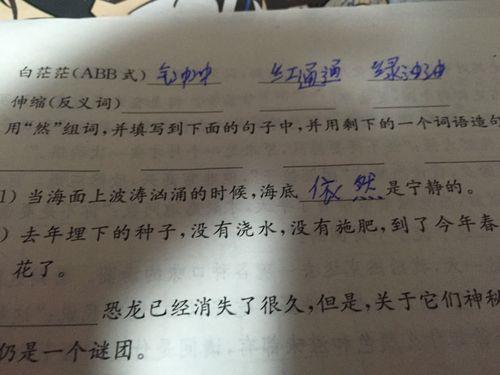 白茫茫(ABB式) 红通通 绿油油
伸缩(反义词)
用“然”组词,并填写到下面的句子中,并用剩下的一个词语造句
1) 当海面上波涛汹涌的时候,海底依然是宁静的。
) 去年埋下的种子,没有浇水,没有施肥,到了今年春
花了。
恐龙已经消失了很久,但是,关于它们神秘
仍是一个谜团。